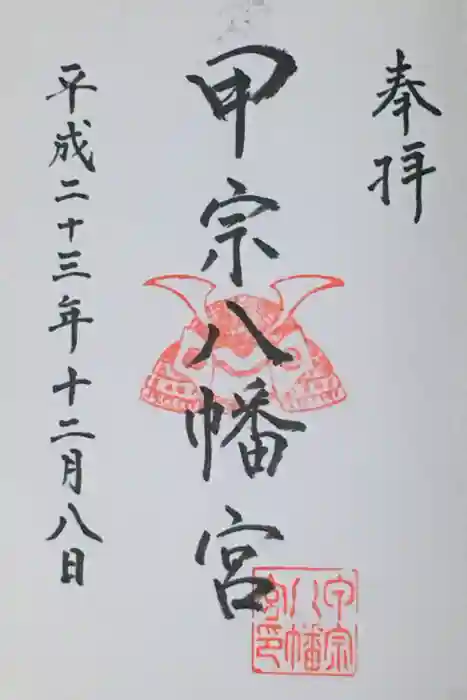 奉拝
甲宗八幡宮
甲宗
八幡
宮印
平成二十三年十二月八日